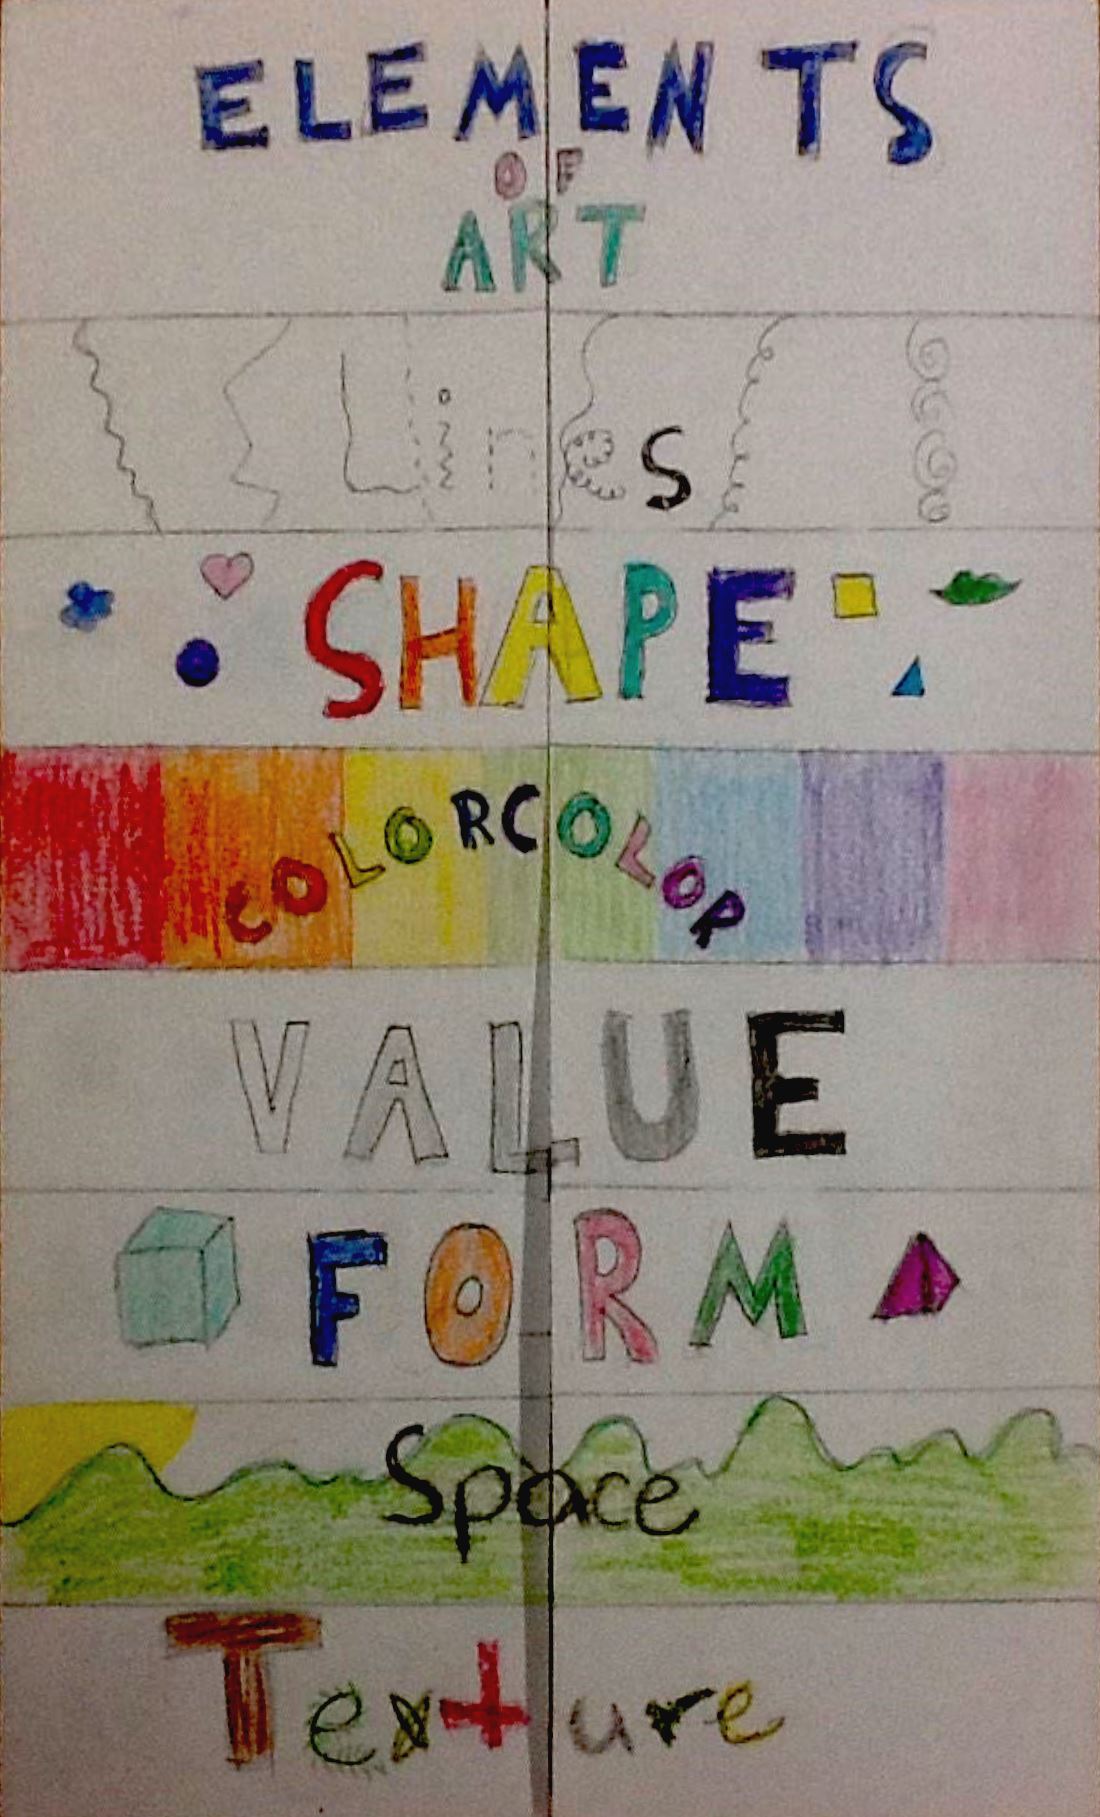 ELEMENTS
OF
ART
Lines
SHAPE
COLORCOLOR
VALUE
FORM
Space
Texture